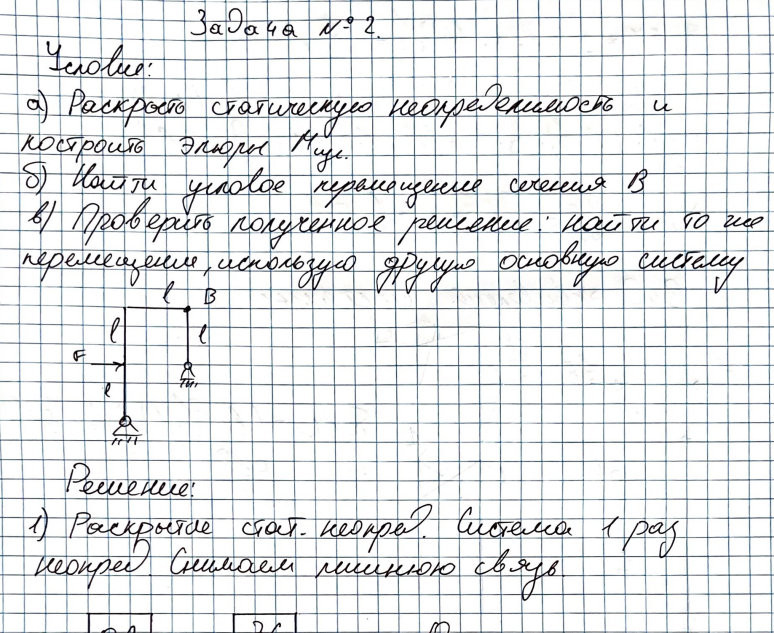 Задача № 2.
Условие:
а) Раскрыть статическую неопределимость и
построить эпюры Mизг.
б) Найти угловое перемещение сечения B
в) Проверить полученное решение: найти то же
перемещение, используя другую основную систему
l B
l l
F
l
Решение:
1) Раскрытие стат. неопред. Система 1 раз
неопред. Снимаем лишнюю связь.